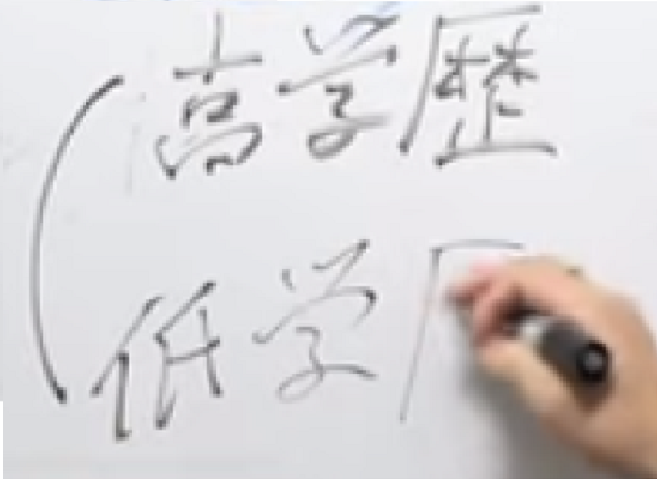 高学歴
低学